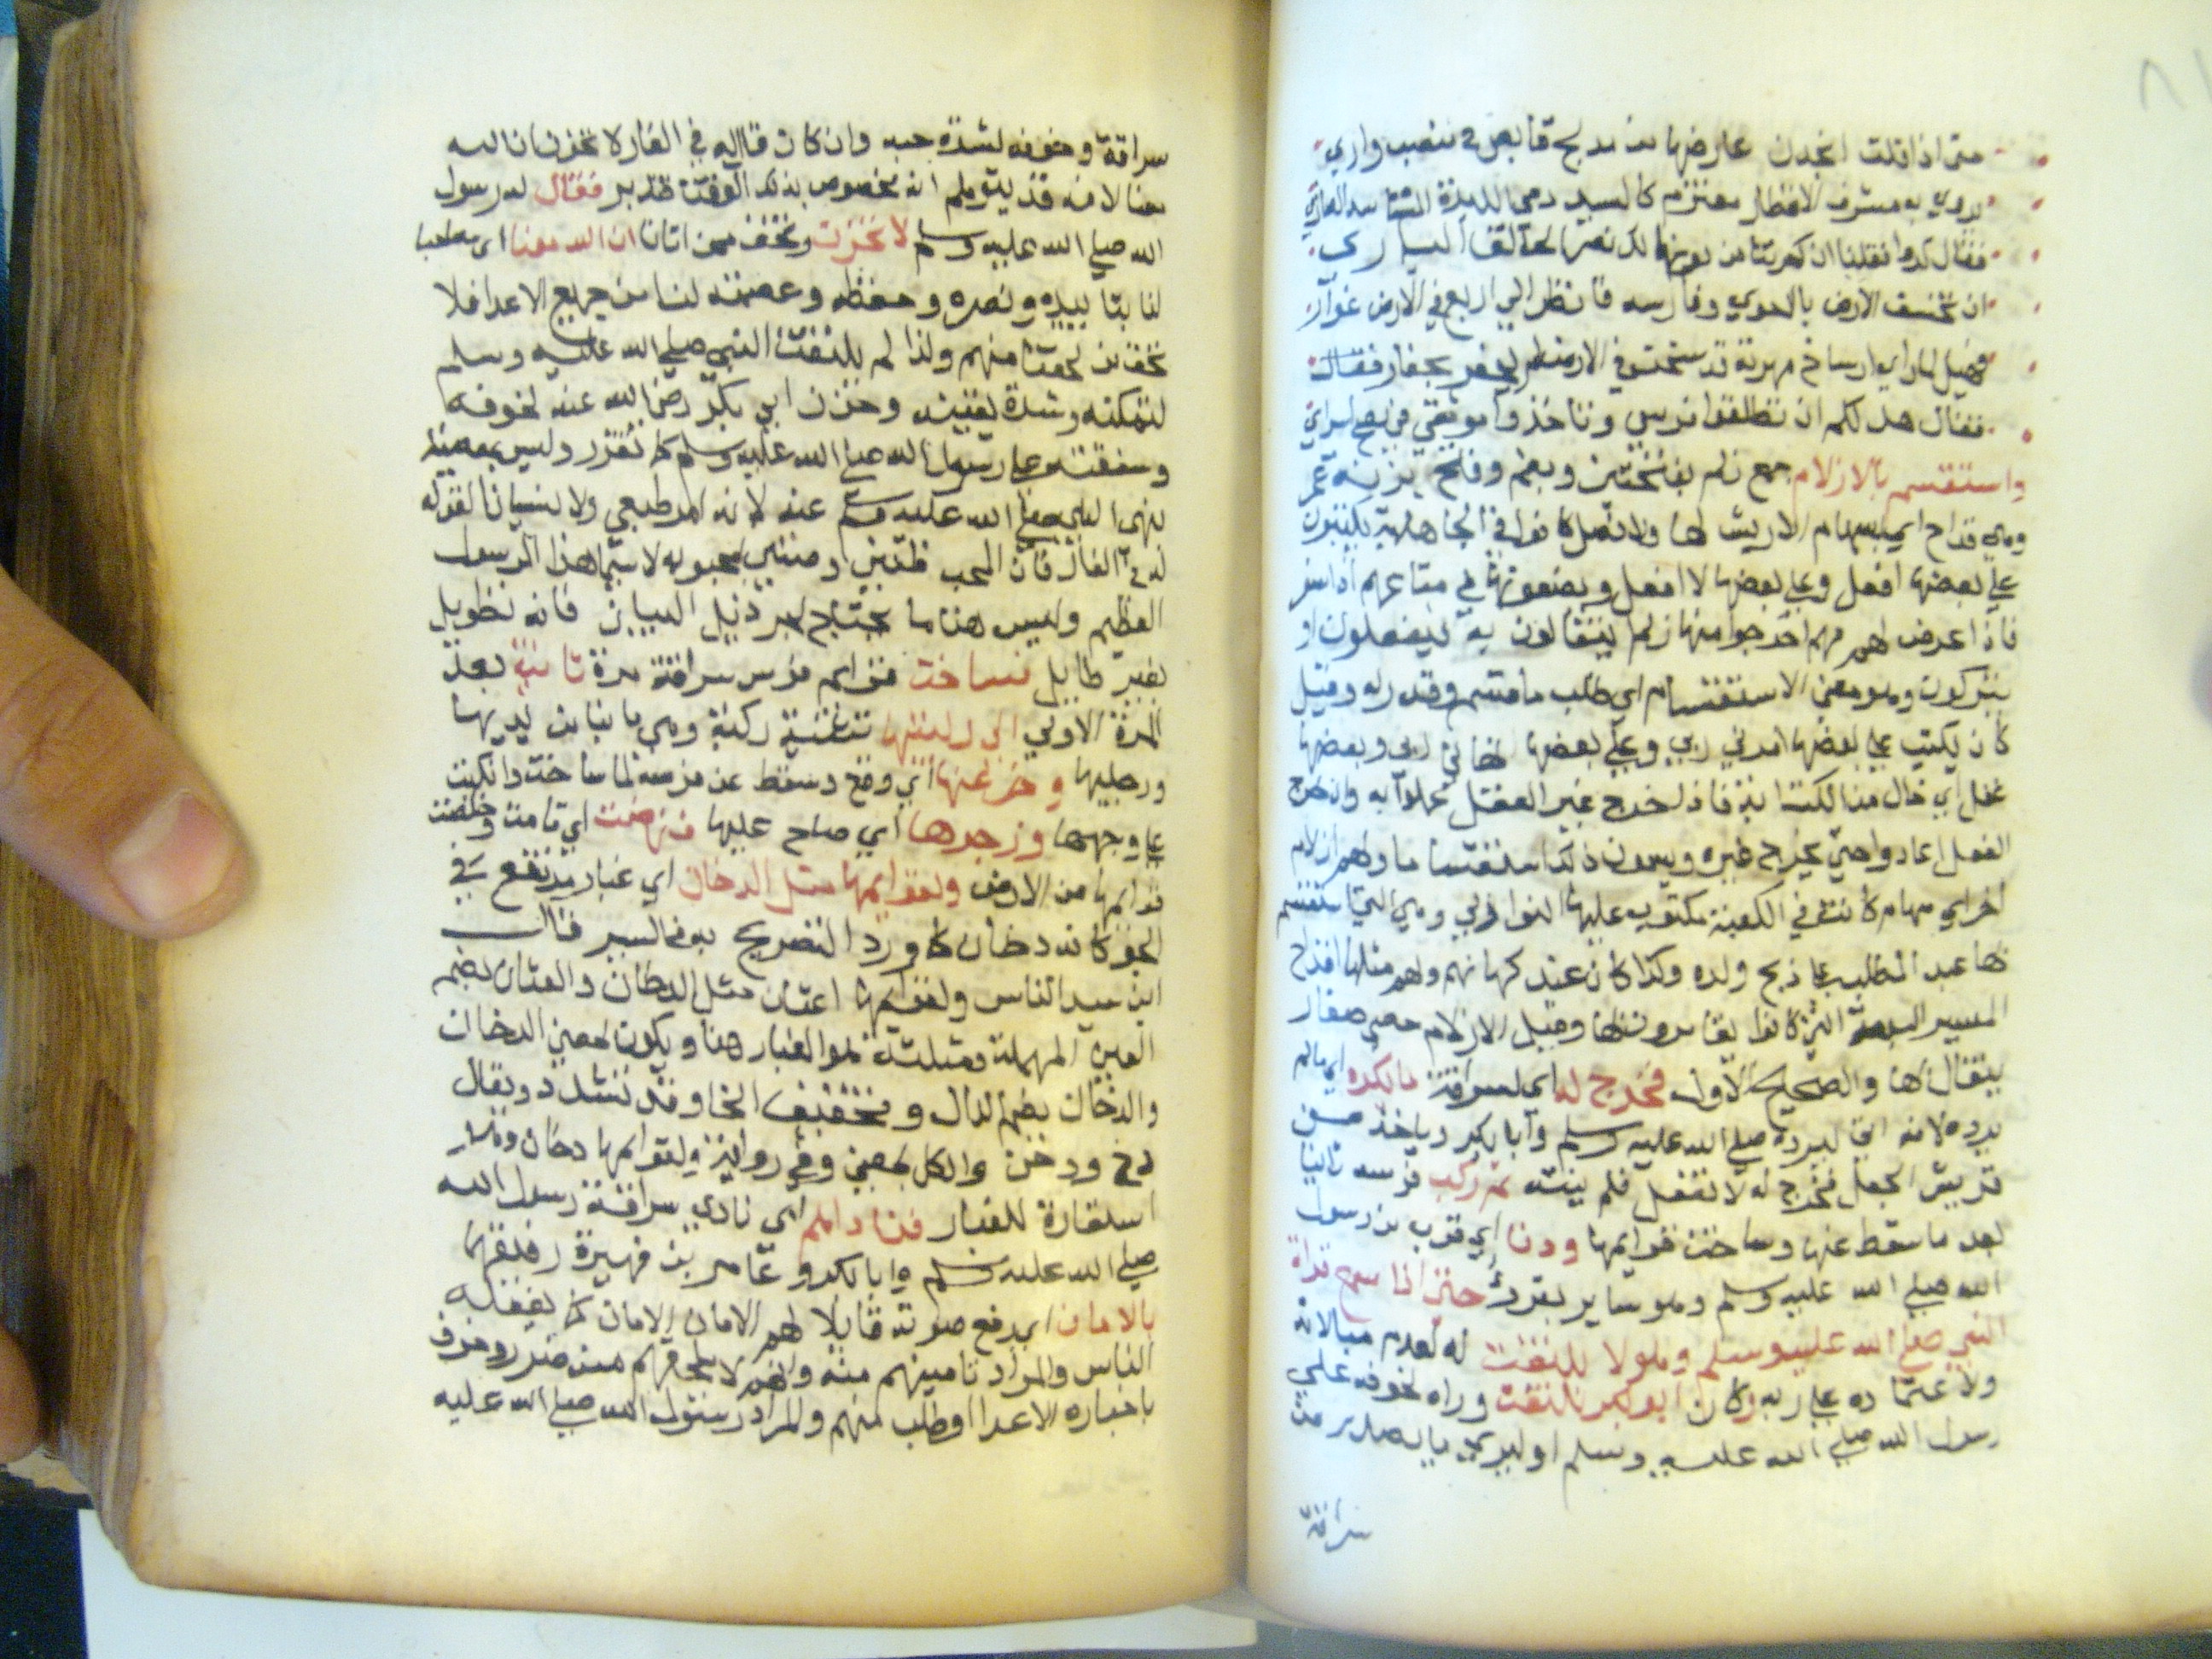 حتى اذا قلت انجدن عارضها من مدلج فارس في منصب واري
يردي به مشرف الاقطار معتزم كالسيد ذي اللبدة المستاسد الضاري
فقال كروا فقلنا ان كرتنا من دونها لك نصر الخالق الباري
ان تخسف الارض بالاحوى وفارسه فانظر الي اربع في الارض غوار
فهيل لما راي ارساغ مهرته قد سخن في الارض لم تحفر بمحفار فقال
فقال هل لكم ان تطلقوا فرسي وتاخذوا موثقي في نصح اسراري
واستقسم بالازلام جمع زلم بفتحتين وبضم وفتح بزنة عمر
وهي قداح اي سهام لا ريش لها ولا نصل كانوا في الجاهلية يكتبون
علي بعضها افعل وعلي بعضها لا افعل ويضعونها في متاعهم اذا سفر
فاذا عرض لهم مهم اخرجوا منها زلما يتفالون به ليفعلون او
يتركون وهو معنى الاستقسام اي طلب ما قسم وقدر له وقيل
كان يكتب علي بعضها امرني ربي وعلي بعضها نهاني ربي وبعضها
غفل اي خال من الكتابة فاذا خرج غير الغفل عملوا به وان خرج
الغفل اعادوا حتى يخرج غيره ويسمون ذلك استقساما ولهم ازلام
اخر اي سهام كانت في الكعبة مكتوب عليها النوازل وهي التي استقسم
بها عبد المطلب علي ذبح ولده وكذا كان عند كهانهم ولهم مثلها اقداح
الميسر السبعة التي كانوا يقامرون بها وقيل الازلام حصى صغار
يتفال بها والصحيح الاول فخرج له اي لسراقة ما يكره اي ما لم
يرده لانه اتى ليرده صلي الله عليه وسلم وابا بكر وياخذ من
قريش الجعل فخرج له لا تفعل فلم ينته ثم ركب فرسه ثانيا
بعد ما سقط عنها وساخت قوايمها ودنا اي قرب من رسول
الله صلي الله عليه وسلم وهو ساير يقرا حتى اذا سمع قراة
النبي صلي الله عليه وسلم وهو لا يلتفت له لعدم مبالاته
ولاعتماده علي ربه وكان ابو بكر يلتفت وراه لخوفه علي
رسول الله صلي الله عليه وسلم او ليري ما يصدر من
سراقة
سراقة وخوفه لشدة حبه وان كان قال له في الغار لا تحزن ان الله
معنا لانه قد يتوهم انه مخصوص بذلك الوقت فتدبر فقال له رسول
الله صلي الله عليه وسلم لا تحزن وتخف ممن اتانا ان الله معنا اي مصاحبا
لنا بتاييده ونصره وحفظه وعصمته لنا من جميع الاعدا فلا
تخف من لحقنا منهم ولذا لم يلتفت النبي صلي الله عليه وسلم
لتمكنه وشدة يقينه وحزن ابي بكر رضي الله عنه لخوفه
وشفقته علي رسول الله صلي الله عليه وسلم كما تقرر وليس بمعصية
نهي النبي صلي الله عليه وسلم عنه لانه امر طبعي ولا نسيانا لقوله
له في الغار فان المحب ظنين وضنين بمحبوبه لا سيما هذا الرسول
العظيم وليس هنا ما يحتاج لجر ذيل البيان فانه تطويل
بغير طايل فساخت قوايم فرس سراقة مرة ثانية بعد
المرة الاولي الي ركبتيها تثنية ركبة وهي ما بين يديها
ورجليها وخر عنها اي وقع وسقط عن فرسه لما ساخت وانكبت
علي وجهها وزجرها اي صاح عليها فنهضت اي قامت وخلصت
قوايمها من الارض ولقوايمها مثل الدخان اي غبار مرتفع في
الجو كانه دخان كما ورد التصريح به في السير قال
ابن سيد الناس ولقوايمها عثان مثل الدخان والعثان بضم
العين المهملة ومثلثة هو الغبار هنا ويكون بمعني الدخان
والدخان بضم الدال وتخفيف الخا وقد تشدد ويقال
دخ ودخن والكل بمعني وفي رواية ولقوايمها دخان وهو
استعارة للغبار فناداهم اي نادي سراقة رسول الله
صلي الله عليه وسلم وابا بكر وعامر بن فهيرة رفيقهما
بالامان اي رفع صوته قايلا لهم الامان الامان كما يفعله
الناس والمراد تامينهم منه وانهم لا يلحقهم منه ضرر وخوف
باخباره الاعدا او طلب منهم والمراد رسول الله صلي الله عليه